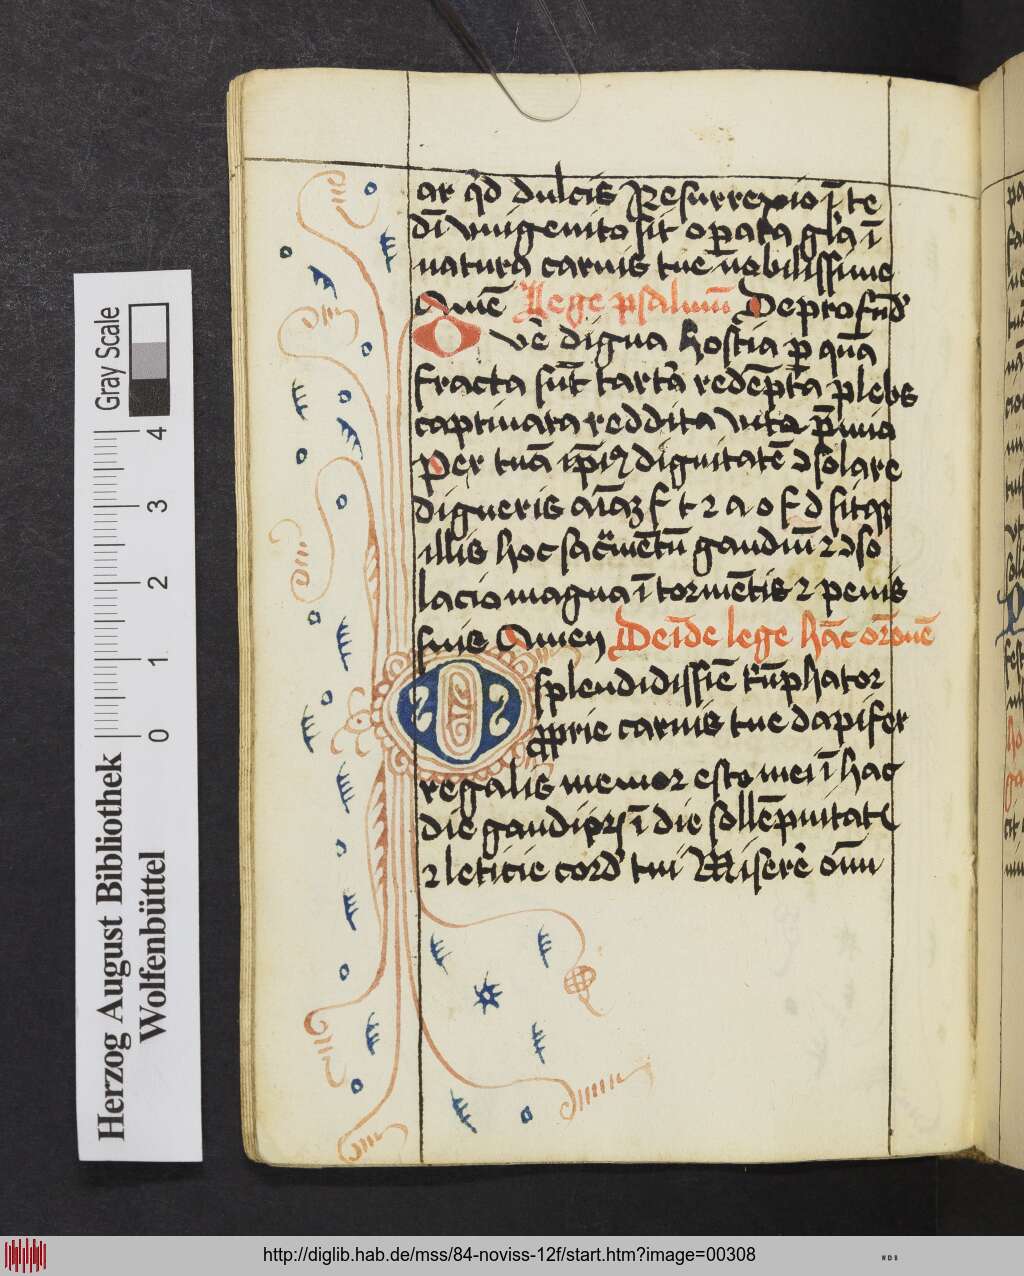 ar qd dulcis Resurrexio ī te
dī vnigenito sit opata gl'a ī
natura carnis tue nobilissime
Amē Lege psalmum De profūd'
O vē digna hostia p quā
fracta sūt tarta redēpta plebs
captiuata reddita vite p̄mia
Per tuā ip̄iꝰ dignitatē ↄsolare
digneris aīaꝫ f t 2 a o f d sitqꝫ
illis hoc sacmētū gaudiū 2 ↄso
lacio magna ī tormētis 2 penis
suis Amen Deīde lege hāc orōnē
O splendidissīe triūphator
ꝓprie carnis tue dapifer
regalis memor esto mei ī hac
die gaudij ī die sollēpnitatē
2 leticie cord' tui Miserē om̄
Herzog August Bibliothek
Wolfenbüttel
0 1 2 3 4
Gray Scale
http://diglib.hab.de/mss/84-noviss-12f/start.htm?image=00308